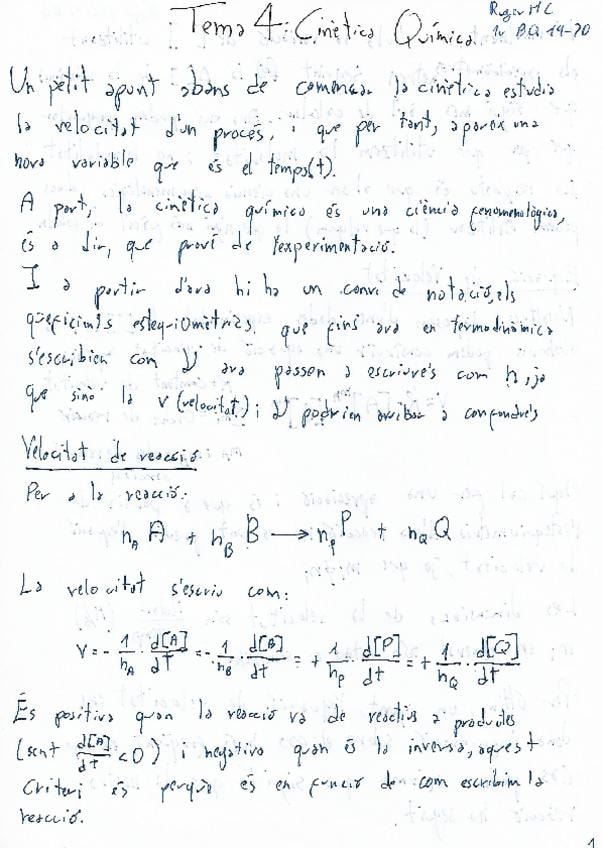 Roger M C
1r BQ 19-20
Tema 4: Cinètica Química
Un petit apunt abans de començar la cinètica estudia
la velocitat d'un procés, i que per tant, apareix una
nova variable que és el temps(t).
A part, la cinètica química és una ciència fenomenològica,
és a dir, que prové de l'experimentació.
I a partir d'ara hi ha un canvi de notació, els
coeficients estequiomètrics, que fins ara en termodinàmica
s'escribien com ν ara passen a escriure's com n, ja
que sino la v (velocitat) i ν podrien arribar a confondre's
Velocitat de reacció
Per a la reacció:
n_A A + n_B B → n_P P + n_Q Q
La velocitat s'escriu com:
V = - 1/n_A · d[A]/dT = - 1/n_B · d[B]/dt = + 1/n_P · d[P]/dt = + 1/n_Q · d[Q]/dt
És positiva quan la reacció va de reactius a productes
(sent d[A]/dt < 0) i negativa quan és la inversa, aquest
criteri és perquè és en funció de com escribim la
reacció.
1